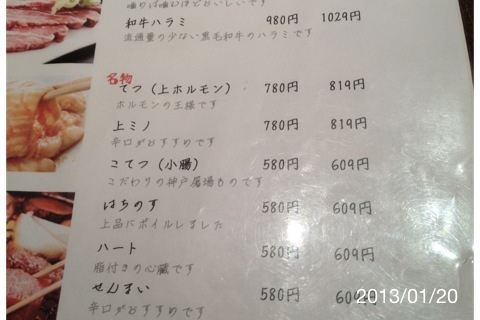 噛めば噛むほどおいしいです
和牛ハラミ 980円 1029円
流通量の少ない黒毛和牛のハラミです
名物
てつ（上ホルモン） 780円 819円
ホルモンの王様です
上ミノ 780円 819円
辛口がおすすめです
こてつ（小腸） 580円 609円
こだわりの神戸屠場ものです
はちのす 580円 609円
上品にボイルしました
ハート 580円 609円
脂付きの心臓です
せんまい 580円 609円
辛口がおすすめです
2013/01/20